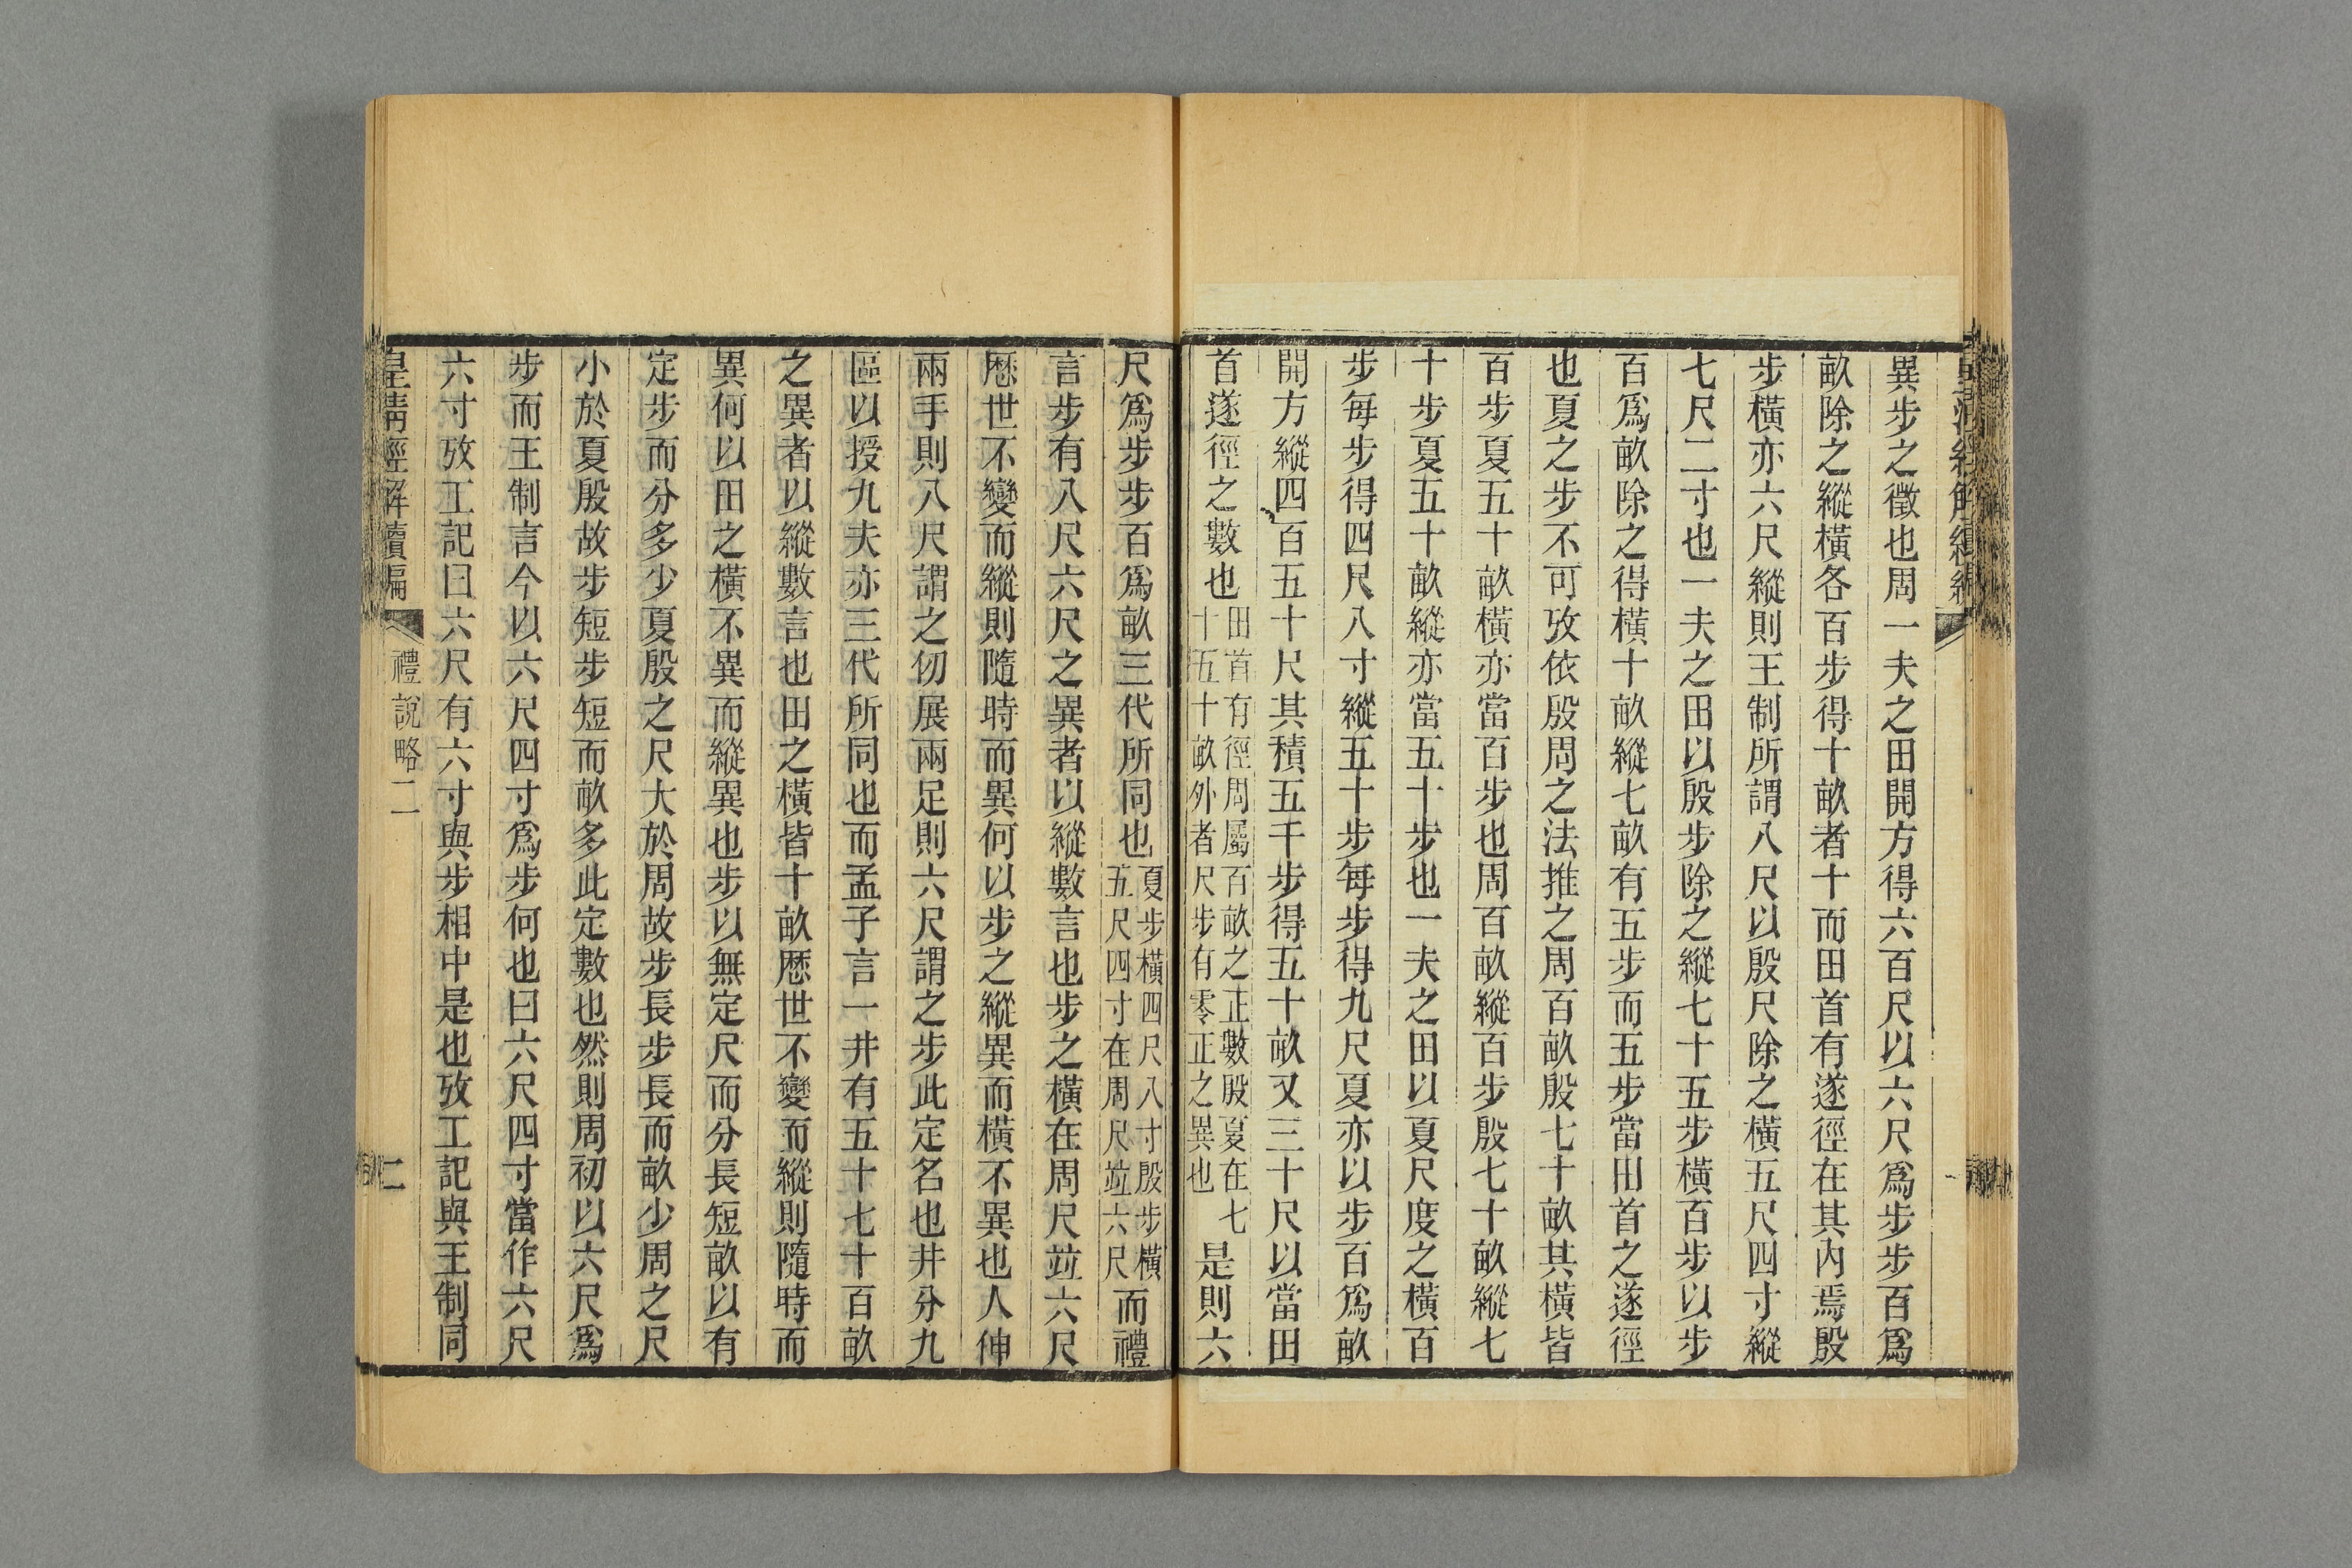 異步之徵也周一夫之田開方得六百尺以六尺爲步步百爲
畝除之縱橫各百步得十畝者十而田首有遂徑在其內焉殷
步橫亦六尺縱則王制所謂八尺以殷尺除之橫五尺四寸縱
七尺二寸也一夫之田以殷步除之縱七十五步橫百步以步
百爲畝除之得橫十畝縱七畝有五步而五步當田首之遂徑
也夏之步不可攷依殷周之法推之周百畝殷七十畝其橫皆
百步夏五十畝橫亦當百步也周百畝縱百步殷七十畝縱七
十步夏五十畝縱亦當五十步也一夫之田以夏尺度之橫百
步每步得四尺八寸縱五十步每步得九尺夏亦以步百爲畝
開方縱四百五十尺其積五千步得五十畝又三十尺以當田
首遂徑之數也田首有徑周屬百畝之正數殷夏在七十五十畝外者尺步有零正之異也是則六
尺爲步步百爲畝三代所同也夏步橫四尺八寸殷步橫五尺四寸在周尺竝六尺而禮
言步有八尺六尺之異者以縱數言也步之橫在周尺竝六尺
歷世不變而縱則隨時而異何以步之縱異而橫不異也人伸
兩手則八尺謂之仞展兩足則六尺謂之步此定名也井分九
區以授九夫亦三代所同也而孟子言一井有五十七十百畝
之異者以縱數言也田之橫皆十畝歷世不變而縱則隨時而
異何以田之橫不異而縱異也步以無定尺而分長短畝以有
定步而分多少夏殷之尺大於周故步長步長而畝少周之尺
小於夏殷故步短步短而畝多此定數也然則周初以六尺爲
步而王制言今以六尺四寸爲步何也曰六尺四寸當作六尺
六寸攷工記曰六尺有六寸與步相中是也攷工記與王制同
皇清經解續編 禮說略二 二